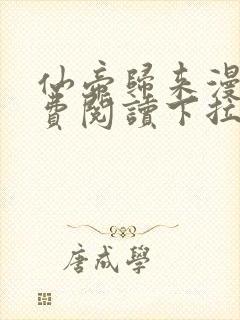 仙帝歸來漫
費閱讀下拉
唐成學